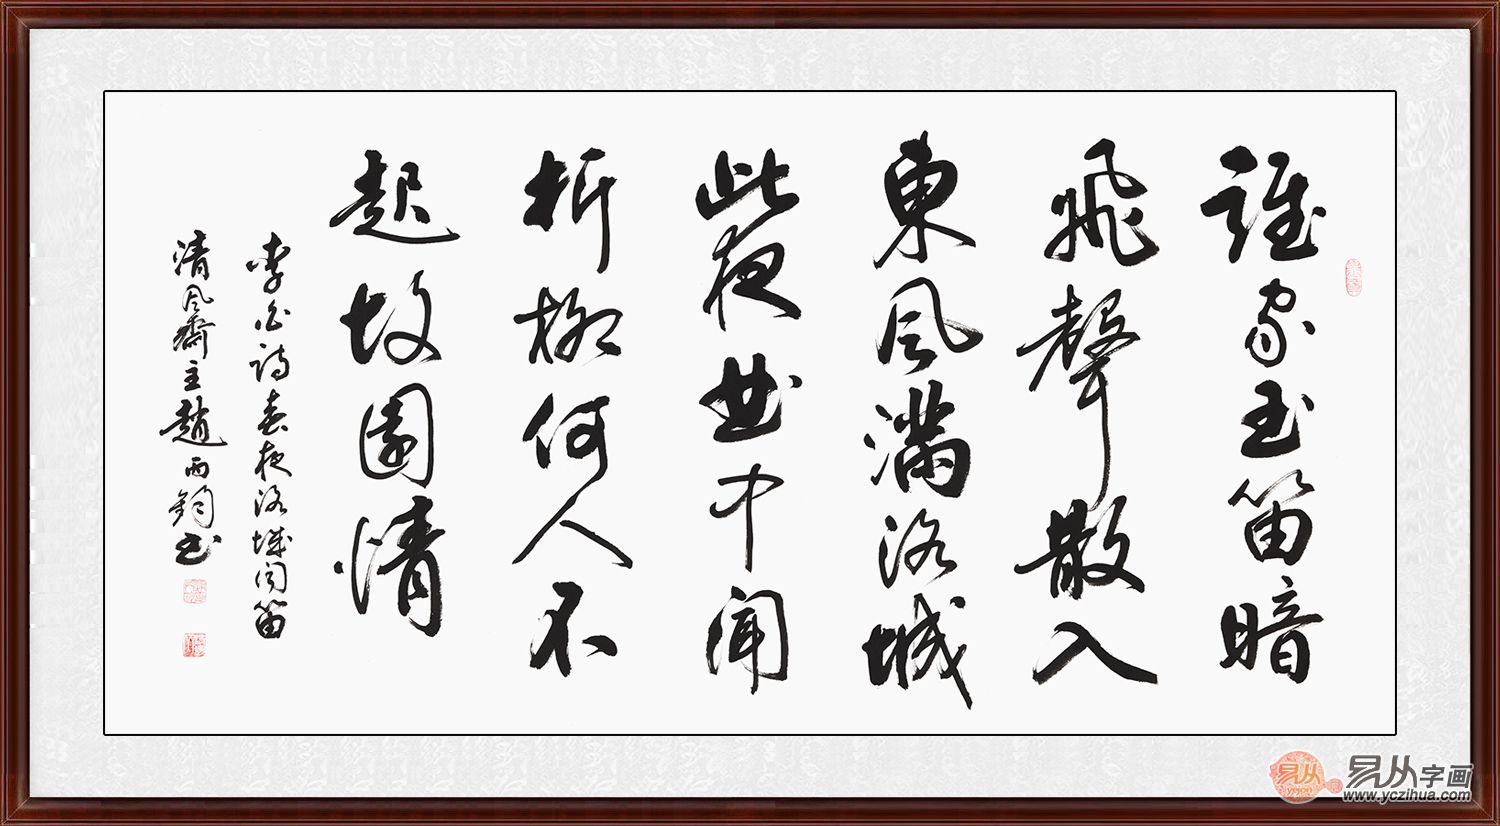 誰家玉笛暗
飛聲散入
東風滿洛城
此夜曲中聞
折柳何人不
起故園情
李白詩春夜洛城闻笛
清风齋主趙雨鈞书
易从
易从字画
www.yczihua.com